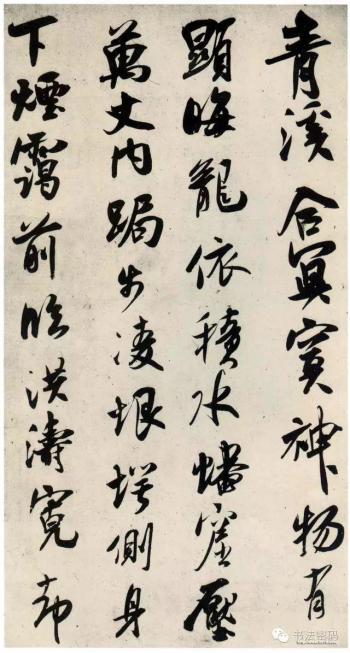 青溪合冥寞神物有
顯晦龍依積水蟠窟壓
萬丈内跼步凌垠堮側身
下煙靄前臨洪濤寬却
书法密码